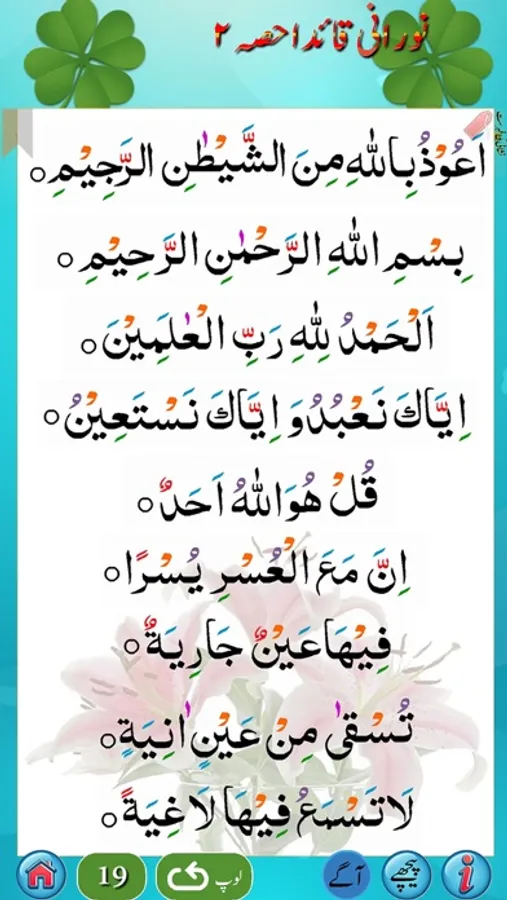 نورانی قائدا حصہ ۲
اَعُوْذُ بِاللّٰهِ مِنَ الشَّيْطٰنِ الرَّجِيْمِ ○
بِسْمِ اللّٰهِ الرَّحْمٰنِ الرَّحِيْمِ ○
اَلْحَمْدُ لِلّٰهِ رَبِّ الْعٰلَمِيْنَ ○
اِيَّاكَ نَعْبُدُ وَ اِيَّاكَ نَسْتَعِيْنُ ○
قُلْ هُوَ اللّٰهُ اَحَدٌ ○
اِنَّ مَعَ الْعُسْرِ يُسْرًا ○
فِيْهَا عَيْنٌ جَارِيَةٌ ○
تُسْقٰى مِنْ عَيْنٍ اٰنِيَةٍ ○
لَا تَسْمَعُ فِيْهَا لَاغِيَةً ○
پیچھے آگے لوپ 19